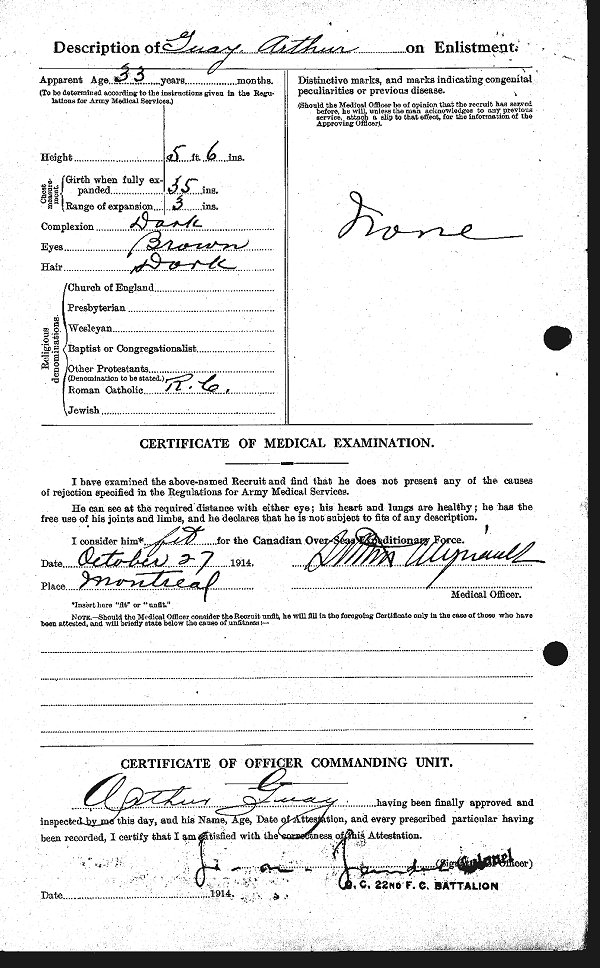 Description of Guay, Arthur on Enlistment.
Apparent Age 33 years months.
(To be determined according to the instructions given in the Regu-
lations for Army Medical Services.)
Height 5 ft. 6 ins.
Chest measure-
ment.
Girth when fully ex-
panded 35 ins.
Range of expansion 3 ins.
Complexion Dark
Eyes Brown
Hair Dark
Religious denominations.
Church of England
Presbyterian
Wesleyan
Baptist or Congregationalist
Other Protestants
(Denomination to be stated.)
Roman Catholic R.C.
Jewish
Distinctive marks, and marks indicating congenital
peculiarities or previous disease.
(Should the Medical Officer be of opinion that the recruit has served
before, he will, unless the man acknowledges to any previous
service, attach a slip to that effect, for the information of the
Approving Officer).
None
CERTIFICATE OF MEDICAL EXAMINATION.
I have examined the above-named Recruit and find that he does not present any of the causes
of rejection specified in the Regulations for Army Medical Services.
He can see at the required distance with either eye; his heart and lungs are healthy; he has the
free use of his joints and limbs, and he declares that he is not subject to fits of any description.
I consider him* fit for the Canadian Over-Seas Expeditionary Force.
Date October 27 1914.
Place Montreal
Medical Officer.
*Insert here "fit" or "unfit."
NOTE.—Should the Medical Officer consider the Recruit unfit, he will fill in the foregoing Certificate only in the case of those who have
been attested, and will briefly state below the cause of unfitness:—
CERTIFICATE OF OFFICER COMMANDING UNIT.
Arthur Guay having been finally approved and
inspected by me this day, and his Name, Age, Date of Attestation, and every prescribed particular having
been recorded, I certify that I am satisfied with the correctness of this Attestation.
(Signature of Officer)
Colonel
O. C. 22ND F. C. BATTALION
Date 1914.